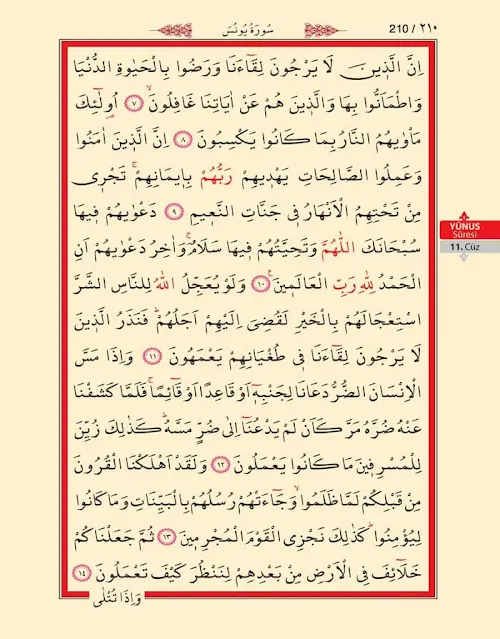 سُورَةُ يُونُسَ
210 / ٢١٠
اِنَّ الَّذ۪ينَ لَا يَرْجُونَ لِقَٓاءَنَا وَرَضُوا بِالْحَيٰوةِ الدُّنْيَا
وَاطْمَاَنُّوا بِهَا وَالَّذ۪ينَ هُمْ عَنْ اٰيَاتِنَا غَافِلُونَۙ ﴿٧﴾ اُو۬لٰٓئِكَ
مَأْوٰيهُمُ النَّارُ بِمَا كَانُوا يَكْسِبُونَ ﴿٨﴾ اِنَّ الَّذ۪ينَ اٰمَنُوا
وَعَمِلُوا الصَّالِحَاتِ يَهْد۪يهِمْ رَبُّهُمْ بِا۪يمَانِهِمْۚ تَجْر۪ي
مِنْ تَحْتِهِمُ الْاَنْهَارُ ف۪ي جَنَّاتِ النَّع۪يمِ ﴿٩﴾ دَعْوٰيهُمْ ف۪يهَا
سُبْحَانَكَ اللّٰهُمَّ وَتَحِيَّتُهُمْ ف۪يهَا سَلَامٌۚ وَاٰخِرُ دَعْوٰيهُمْ اَنِ
الْحَمْدُ لِلّٰهِ رَبِّ الْعَالَم۪ينَ۟ ﴿١٠﴾ وَلَوْ يُعَجِّلُ اللّٰهُ لِلنَّاسِ الشَّرَّ
اسْتِعْجَالَهُمْ بِالْخَيْرِ لَقُضِيَ اِلَيْهِمْ اَجَلُهُمْۜ فَنَذَرُ الَّذ۪ينَ
لَا يَرْجُونَ لِقَٓاءَنَا ف۪ي طُغْيَانِهِمْ يَعْمَهُونَ ﴿١١﴾ وَاِذَا مَسَّ
الْاِنْسَانَ الضُّرُّ دَعَانَا لِجَنْبِه۪ٓ اَوْ قَاعِدًا اَوْ قَٓائِمًاۚ فَلَمَّا كَشَفْنَا
عَنْهُ ضُرَّهُ مَرَّ كَاَنْ لَمْ يَدْعُنَٓا اِلٰى ضُرٍّ مَسَّهُۜ كَذٰلِكَ زُيِّنَ
لِلْمُسْرِف۪ينَ مَا كَانُوا يَعْمَلُونَ ﴿١٢﴾ وَلَقَدْ اَهْلَكْنَا الْقُرُونَ
مِنْ قَبْلِكُمْ لَمَّا ظَلَمُواۙ وَجَٓاءَتْهُمْ رُسُلُهُمْ بِالْبَيِّنَاتِ وَمَا كَانُوا
لِيُؤْمِنُواۜ كَذٰلِكَ نَجْزِي الْقَوْمَ الْمُجْرِم۪ينَ ﴿١٣﴾ ثُمَّ جَعَلْنَاكُمْ
خَلَٓائِفَ فِي الْاَرْضِ مِنْ بَعْدِهِمْ لِنَنْظُرَ كَيْفَ تَعْمَلُونَ ﴿١٤﴾
وَاِذَا تُتْلٰى
YÛNUS
Sûresi
11. Cüz